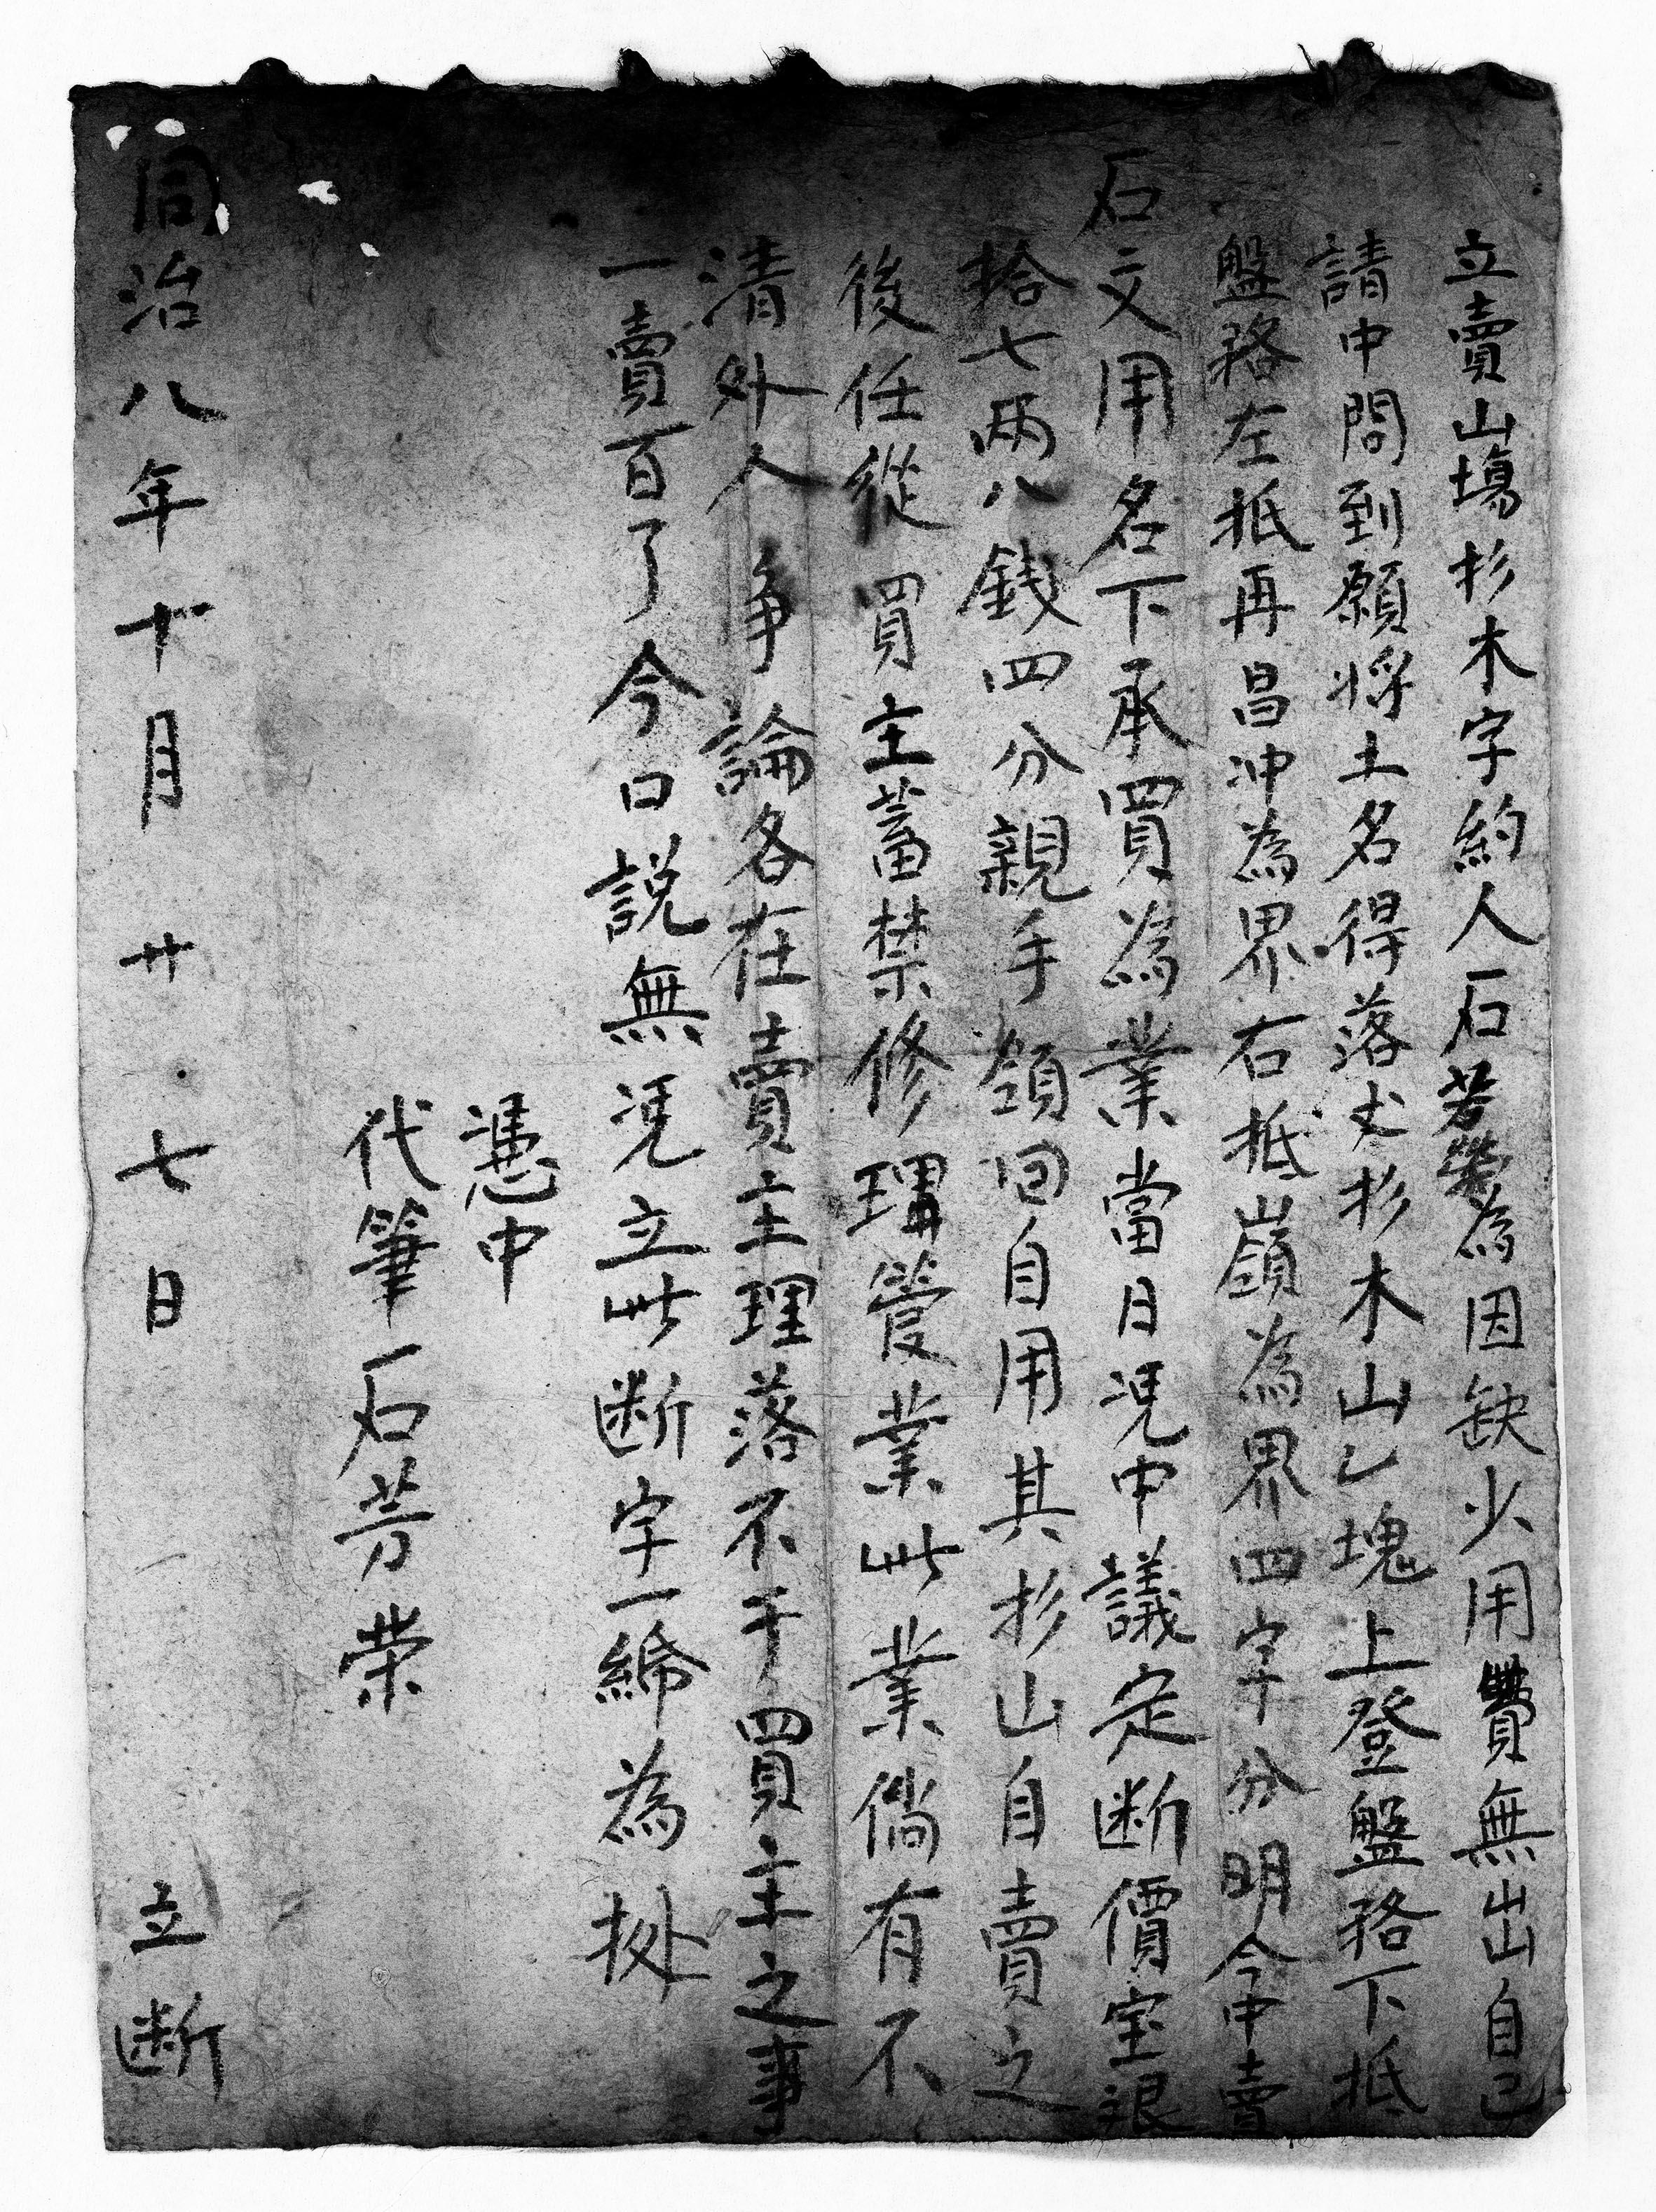 立賣山塲杉木字約人石芳榮為因缺少用費無出自己
請中問到願將土名得落丈杉木山乙塊上登盤路下抵
盤路左抵再昌冲為界右抵嶺為界四字分明今中賣
石文用名下承買為業當日凴中議定断價宝銀
拾七兩八錢四分親手領回自用其杉山自賣之
後任從買主蓄禁修理管業此業倘有不
清外人争論各在賣主理落不干買主之事
一賣百了今口説無凴立此断字一紙為𢴃
憑中
代筆石芳荣
同治八年十月廿七日立断